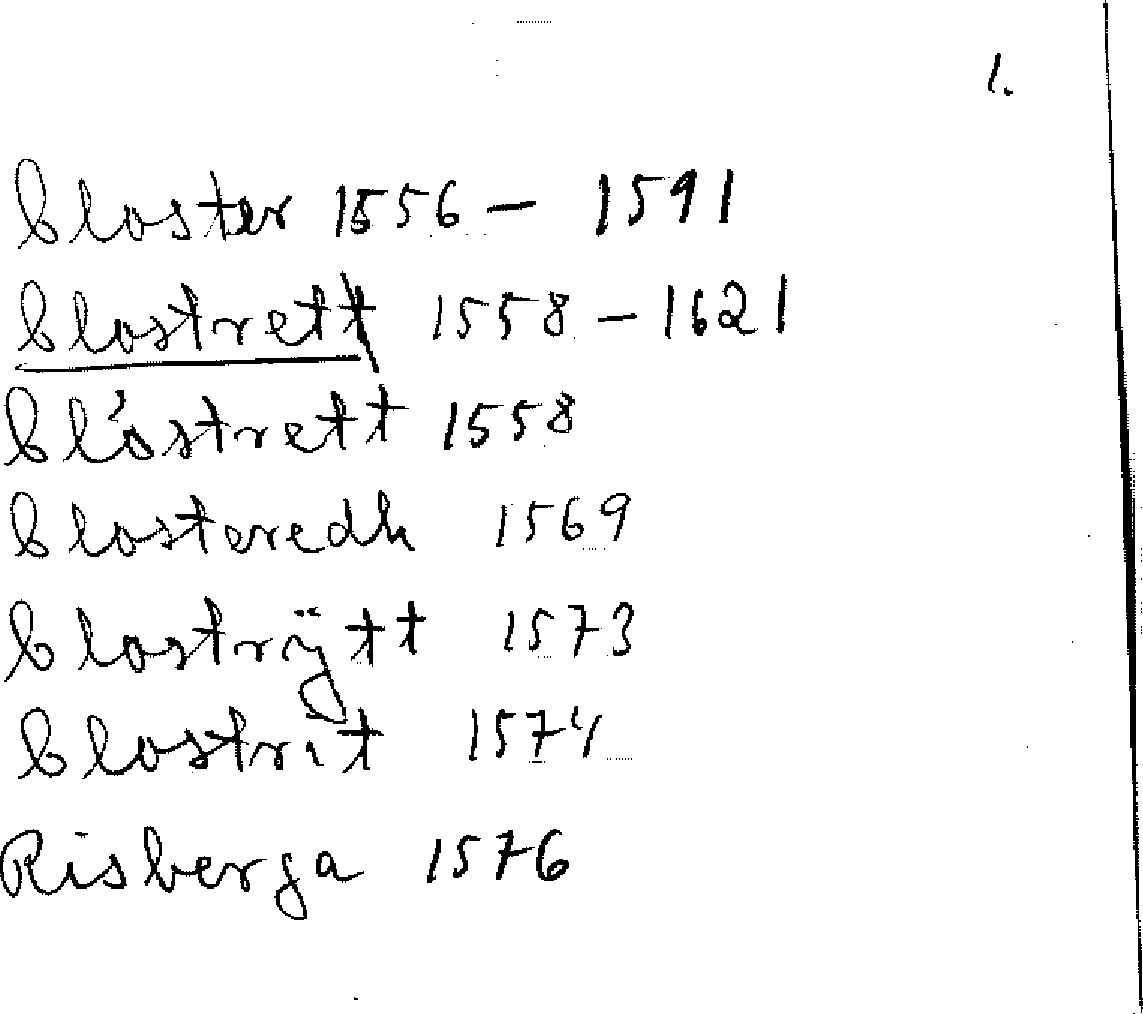 1.
Closter 1556 – 1591
Clostrett 1558 – 1621
Clóstrett 1558
Closteredh 1569
Clostrÿtt 1573
Clostrit 1574
Risberga 1576